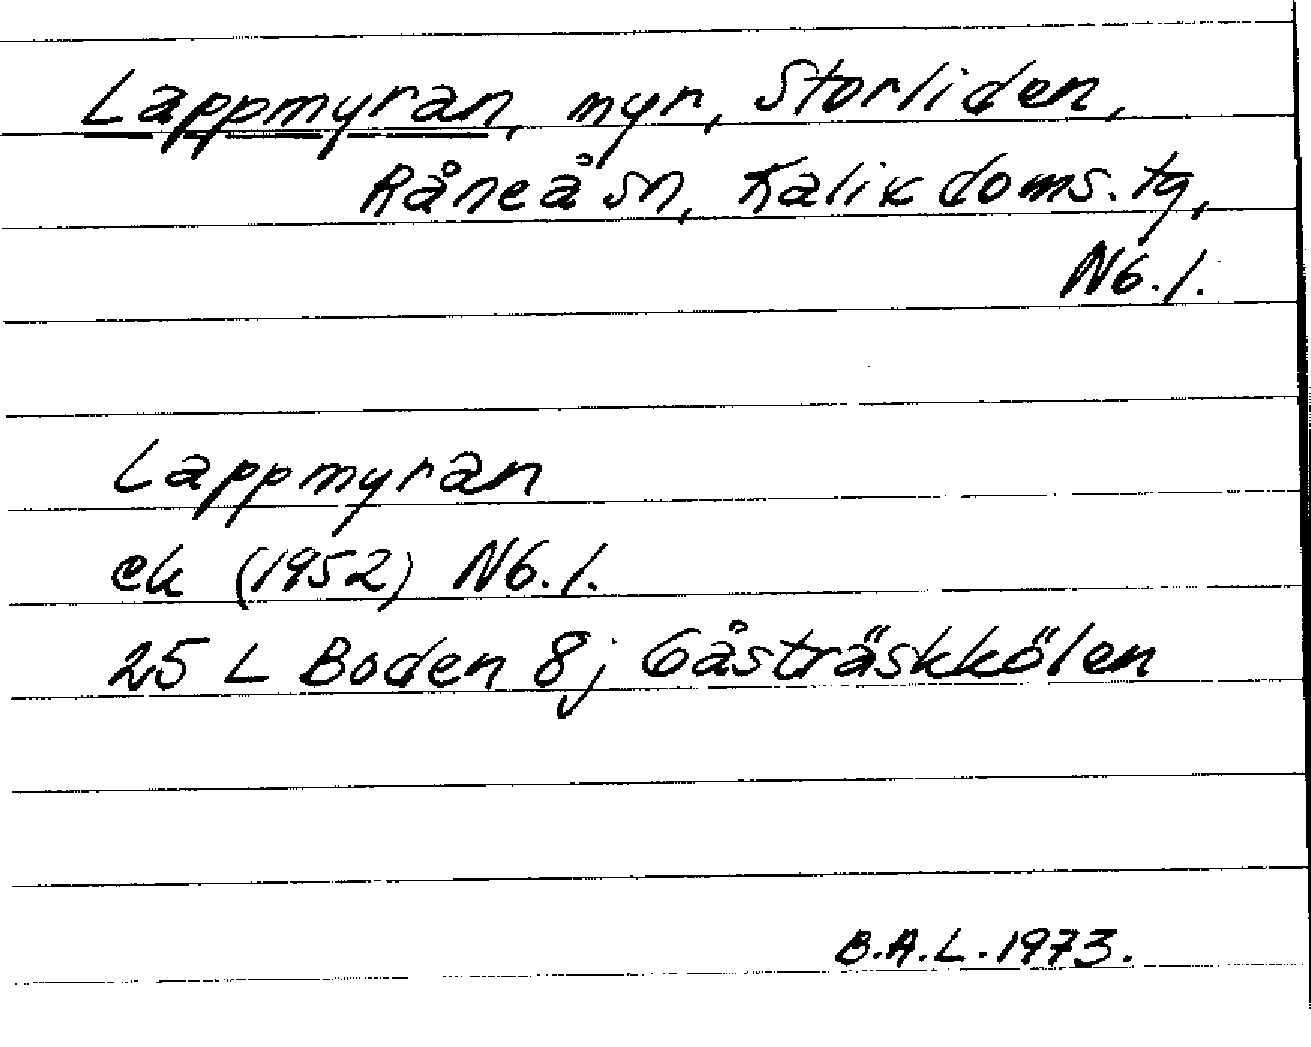 Lappmyran, myr, Storliden,
Råneå sn, Kalix doms. tg,
Nb. l.
Lappmyran
ek (1952) Nb. l.
25 L Boden 8j Gåsträskkölen
B.A.L. 1973.